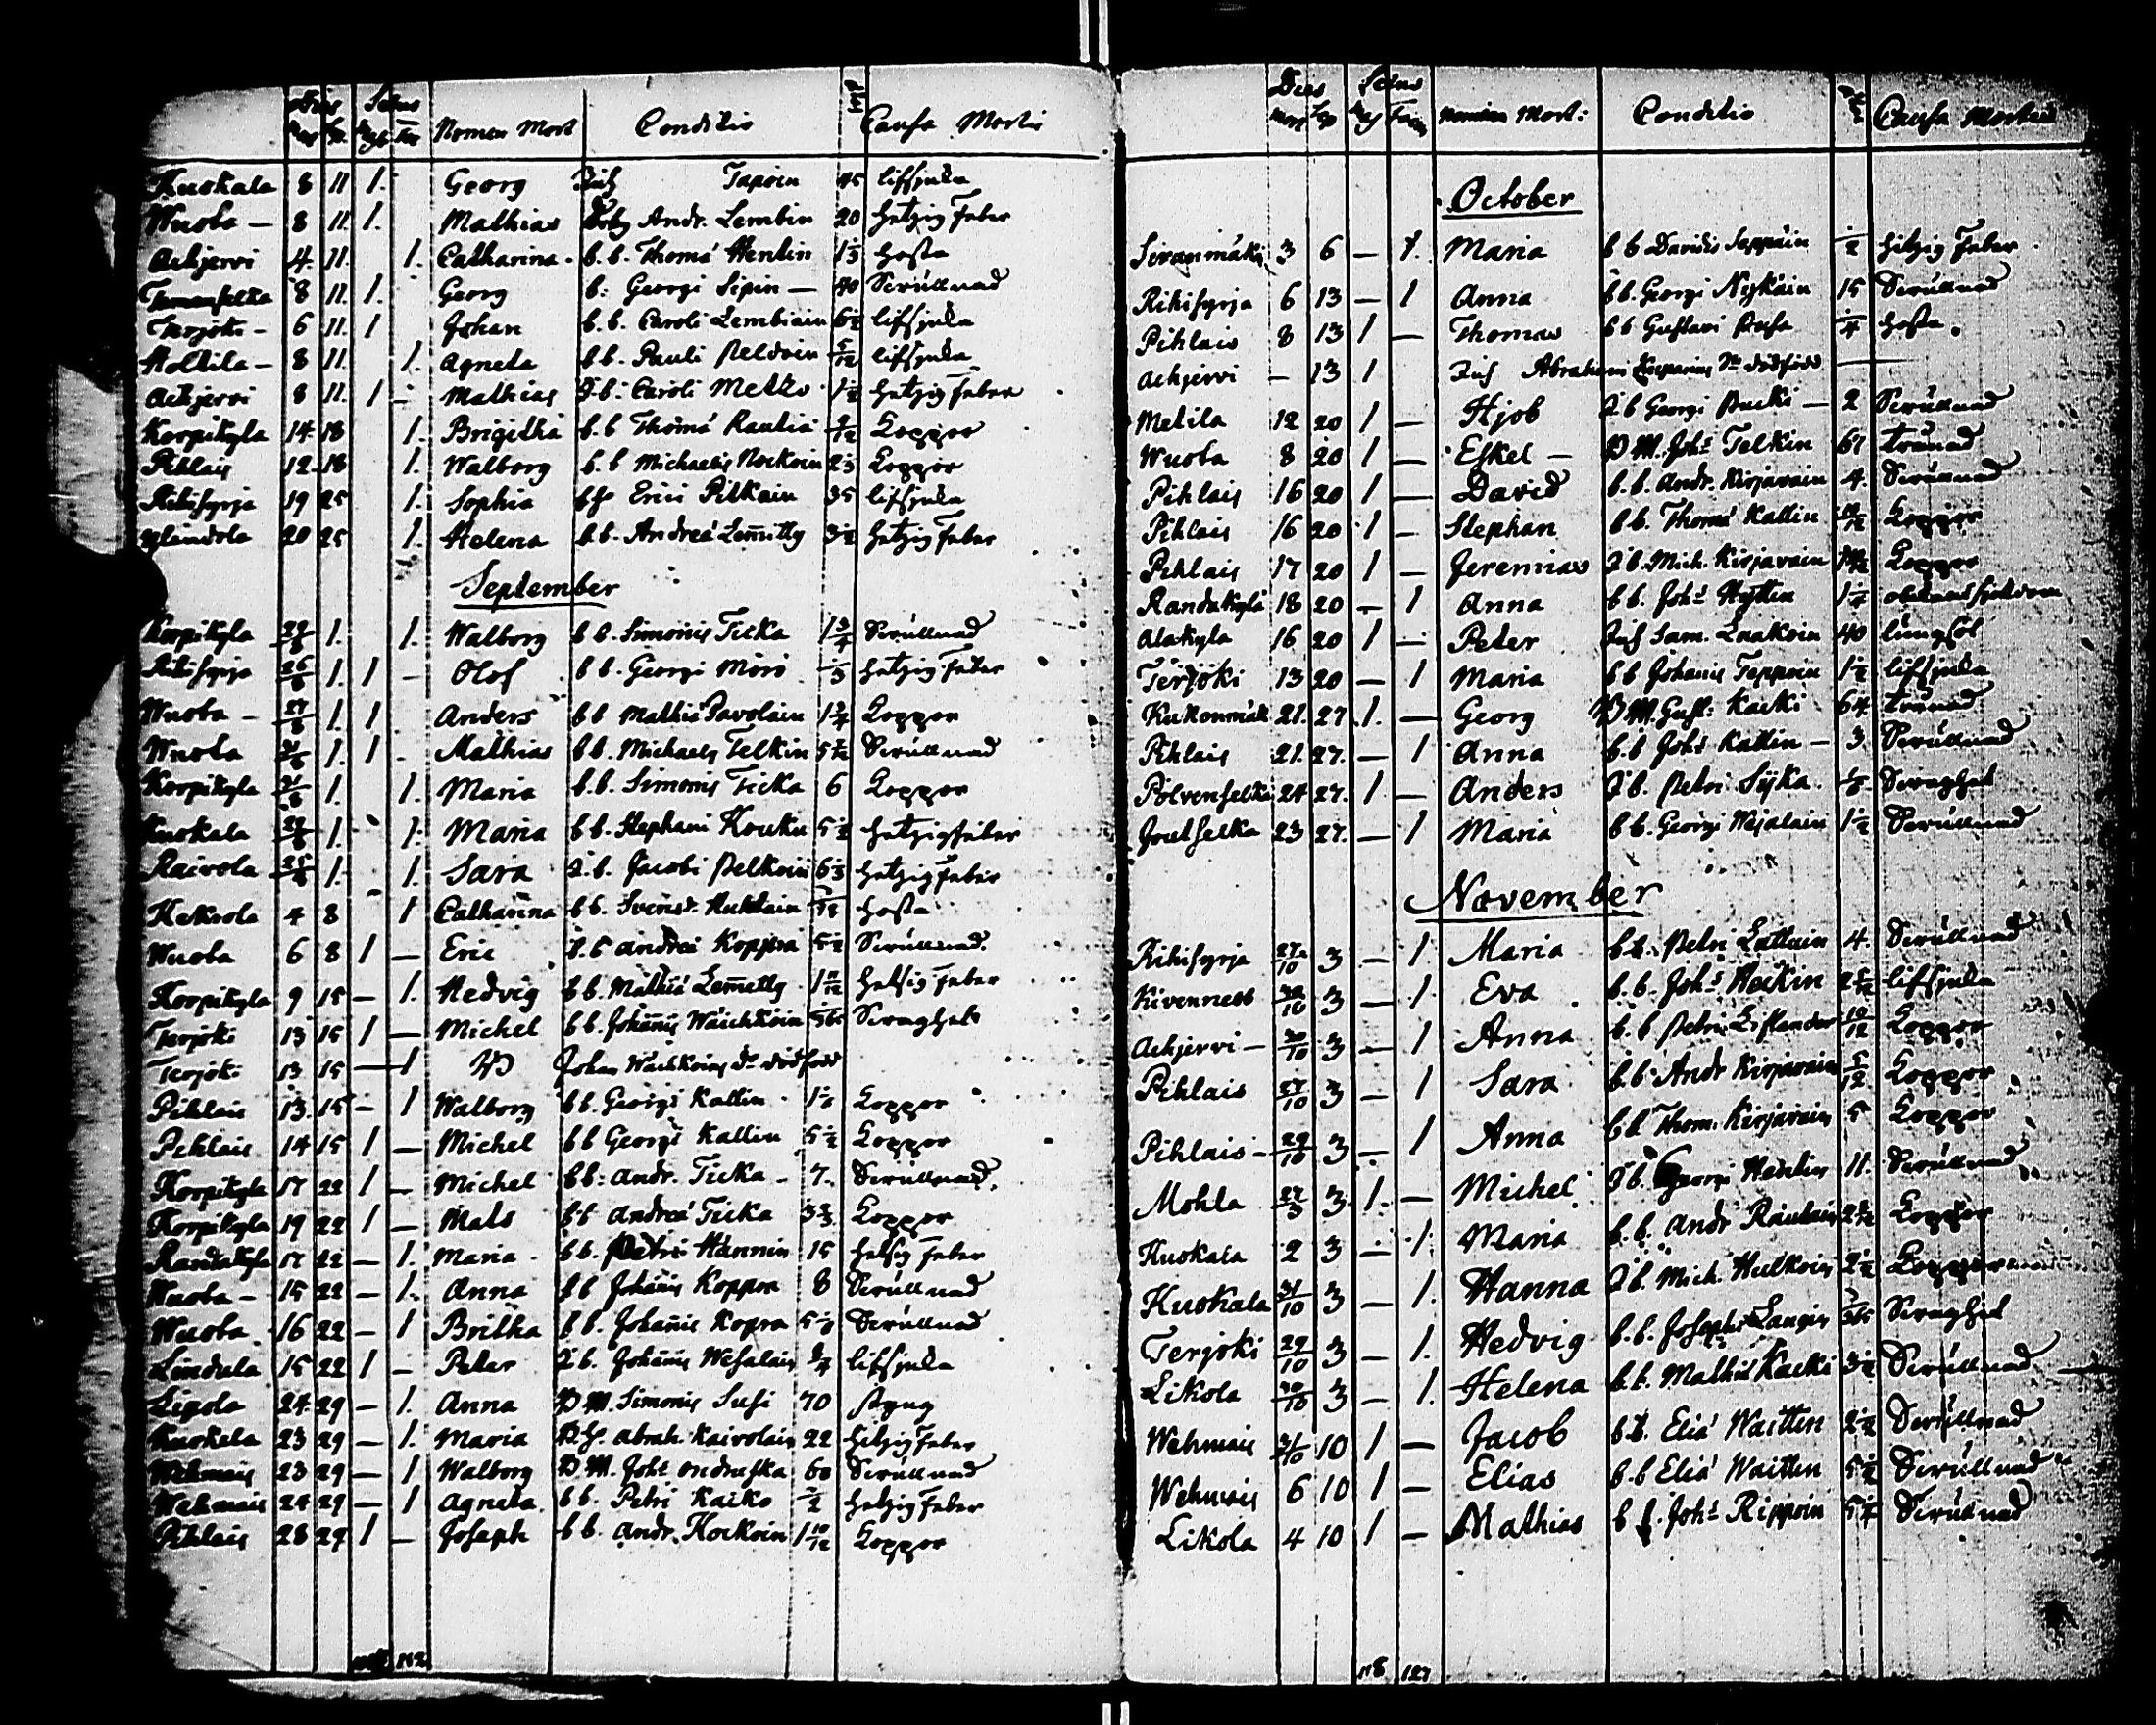 Dies Sexus
Mort Sep Masc Fem Nomen Mort Conditio Causa Mortis
Kuokala 8 11 1. Georg Inh Taposin 45 lifsjuka
Wuota — 8 11. 1. Mathias Andr. Lembin 20 hetzig feber
Achjervi 4. 11. 1. Catharina. b.b. Thomæ Hentin 1 1/3 hosta
8 11. 1. Georg b: Georgi Sipin — 40 Swullnad
Terjoki — 6 11. 1 Johan b.b. Caroli Lembiain 6 1/2 lifsjuka
Holtila — 8 11. 1. Agneta b.b. Pauli Peldoin lifsjuka
Achjervi 8 11. 1 — Mathias I.b: Caroli Metzo 1 1/2 hetzig feber
Korpikyla 14 18 1. Brigitha b.b Thomæ Rautia Koppor
Pihlais 12 18 1. Walborg b.b Michaelis Kockoin 2 1/3 Koppor
Rihisyrja 19 25 1. Sophia Erici Pitkain 35 lifsjuka
20 25 1. Helena b.b. Andreæ Lemitty 3 1/2 hetzig feber
September
Korpikyla 1. 1. Walborg b b. Simonis Ticka 1 3/4 Swullnad
Rihisyrja 26/8 1. 1 — Olof b b. Georgi Möro hetzig feber
Wuota — 27/8 1. 1 Anders b b Mathiæ Pavolain Koppor
Wuota 1. 1 - Mathias b b. Michaelis Telkin Swullnad
Korpikyla 1. 1. Maria b.b. Simonis Ticka 6 Koppor
Kuokala 1. 1. Maria b b. Stephani Kouku 5 1/2 hetzig feber
Raivola 1. 1. Sara I.b. Jacobi Pelkoin 6 1/3 hetzig feber
Kekrola 4 8 1 Catharina b b. hosta
Wuota 6 8 1 — Eric I.b Andreæ Koppra 5 1/2 Swullnad.
Korpikyla 9 15 — 1. Hedvig b b. Mathiæ Lemetty hetsig feber
Terjoki 13 15 1 — Michel b b. Johanis Wäichkoin Swaghet
Terjoki 13 15 — 1 Johan Wächkoins dr dödfödd
Pihlais 13. 15 — 1 Walborg b b. Georgi Kallin Koppor
Pihlais 14 15 1 — Michel b b Georgi Kallin 5 1/2 Koppor
Korpikyla 17 22 1 — Michel b b: Andr. Ticka — 7. Swullnad.
Korpikyla 19 22 1 — Mats b b Andreæ Ticka Koppor
Randakyla 17 22 — 1. Maria — b b. Petri Hännin 15 hetsig feber
Wuota — 15 22 — 1. Anna b b Johanis Koppra 8 Swullnad
Wuota 16 22 — 1 Britha b b. Johanis Kopra Swullnad
Lindula 15 22 1 — Peter I b. Johanis Wesalain lifsjuka
Lipola 24 29 — 1. Anna Simonis Susi 70 styng
Kuokala 23 29 — 1. Maria Abrah. Kaivolain 22 hitzig feber
Wehmais 23 29 — 1 Walborg Johs Ondruska 60 Swullnad
Wehmais 24 29 — 1 Agneta. b b. Petri Kacko hetzig feber
Pihlais 28 29 1 — Joseph b b. Andr. Kockoin 1 10/12 Koppor
112
Dies Sexus
Mort Sep Masc Fem Nomen Mort: Conditio Causa Mortis
October
Sivanmäki 3 6 — 1. Maria b b Davidis Seppäin 1/2 hitzig feber.
Rihisyrja 6 13 — 1 Anna b b. Georgi Nykäin 15 Swullnad
Pihlais 8 13 1 — Thomas b b Gustavi Pusa 1/4 hosta.
Achjervi — 13 1 Inh Abrahami dödfödd —
Metila 12 20 1 — Hjob I b Georgi Pucki — 2 Swullnad
Wuota 8 20 1 — Eskel — Johs Telkin 67 trånad
Pihlais 16 20 1 — David b.b. Andr. Kirjavain 4. Swullnad
Pihlais 16 20 1 — Stephan b b. Thomæ Kallin Koppor
Pihlais 17 20 1 — Jeremias I b. Mich. Kirjavain Koppor
Randakylä 18 20 — 1 Anna b b. Johs Hyttin
Alakyla 16 20 1 — Peter Inh Sam. Laakoin 40 lungsot
Terjoki 13 20 — 1 Maria b b Johanis Teppoin 1 1/2 lifsjuka
Kukonmäk 21. 27. 1. — Georg Gust: Kacki 64 trånad
Pihlais 21. 27. — 1 Anna b.b Johs Kallin — 3 Swullnad
Pölvenselkä 24 27. 1. — Anders I b. Petri Syka. Swaghet
Joutselka 23 27. — 1 Maria b b. Georgi Wesalain 1 1/2 Swullnad
November
Rihisyrja 27/10 3 — 1. Maria b.b. Petri Lattuin 4. Swullnad
Kivennebb 3 — 1. Eva b.b. Johs Hockin lifsjuka
Achjervi — 3 — 1 Anna b.b Petri Liflander 10/12 Koppor
Pihlais 27/10 3 — 1 Sara b b. Andr Kirjavain 5/12 Koppor
Pihlais — 29/10 3 — 1 Anna b b Thom. Kirjavain 5 Koppor
Mohla 3. 1. — Michel I b. Georgi Hentin 11. Swullnad
Kuokala 2 3 — 1. Maria b. b. Andr Rautain Koppor
Kuokala 31/10 3 — 1. Hanna I b. Mich. Hulkoin 2 1/2 Koppor
Terjoki 29/10 3 — 1. Hedvig b.b. Josephi Langin Swaghet
Likola 30/10 3 — 1. Helena b.b. Mathiæ Kacki 3 1/2 Swullnad
Wehmais 31/10 10 1 — Jacob b.b. Eliæ Waittin 2 1/2 Swullnad
Wehmais 6 10 1 — Elias b b Eliæ Waittin 5 1/2 Swullnad
Likola 4 10 1 — Mathias b b. Johs Rippoin Swullnad
118 127